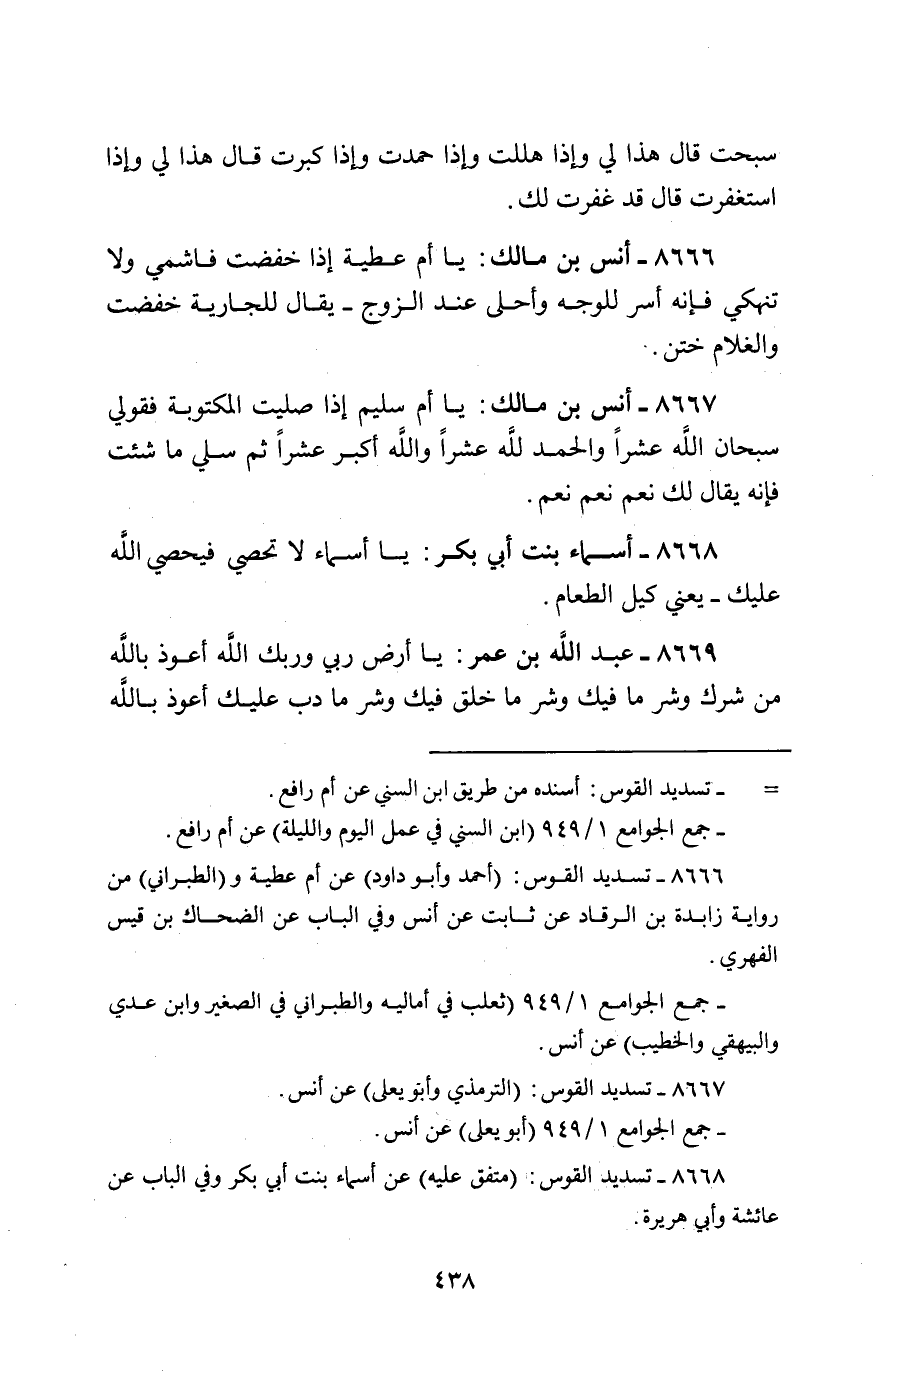 سبحت قال هذا لي وإذا هللت وإذا حمدت وإذا كبرت قال هذا لي وإذا
استغفرت قال قد غفرت لك .
٨٦٦٦ ـ أنس بن مالك : يا أم عطية إذا خفضت فاشمي ولا
تنهكي فإنه أسر للوجه وأحلى عند الزوج ـ يقال للجارية خفضت
والغلام ختن .
٨٦٦٧ ـ أنس بن مالك : يا أم سليم إذا صليت المكتوبة فقولي
سبحان اللَّه عشراً والحمد للَّه عشراً واللَّه أكبر عشراً ثم سلي ما شئت
فإنه يقال لك نعم نعم نعم .
٨٦٦٨ ـ أسماء بنت أبي بكر : يا أسماء لا تحصي فيحصي اللَّه
عليك ـ يعني كيل الطعام .
٨٦٦٩ ـ عبد اللَّه بن عمر : يا أرض ربي وربك اللَّه أعوذ باللَّه
من شرك وشر ما فيك وشر ما خلق فيك وشر ما دب عليك أعوذ باللَّه
= ـ تسديد القوس : أسنده من طريق ابن السني عن أم رافع .
ـ جمع الجوامع ١/ ٩٤٩ (ابن السني في عمل اليوم والليلة) عن أم رافع .
٨٦٦٦ ـ تسديد القوس : (أحمد وأبو داود) عن أم عطية و (الطبراني) من
رواية زابدة بن الرقاد عن ثابت عن أنس وفي الباب عن الضحاك بن قيس
الفهري .
ـ جمع الجوامع ١/ ٩٤٩ (ثعلب في أماليه والطبراني في الصغير وابن عدي
والبيهقي والخطيب) عن أنس .
٨٦٦٧ ـ تسديد القوس : (الترمذي وأبو يعلى) عن أنس .
ـ جمع الجوامع ١/ ٩٤٩ (أبو يعلى) عن أنس .
٨٦٦٨ ـ تسديد القوس : (متفق عليه) عن أسماء بنت أبي بكر وفي الباب عن
عائشة وأبي هريرة .
٤٣٨